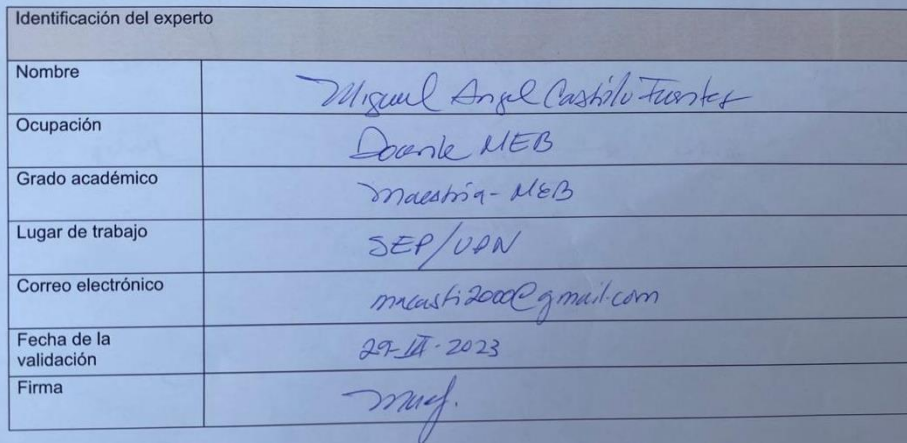 Identificación del experto
Nombre
Miguel Angel Castillo Fuentes
Ocupación
Docente MEB
Grado académico
Maestría - MEB
Lugar de trabajo
SEP/UPN
Correo electrónico
macasti2000@gmail.com
Fecha de la
validación
29-III-2023
Firma